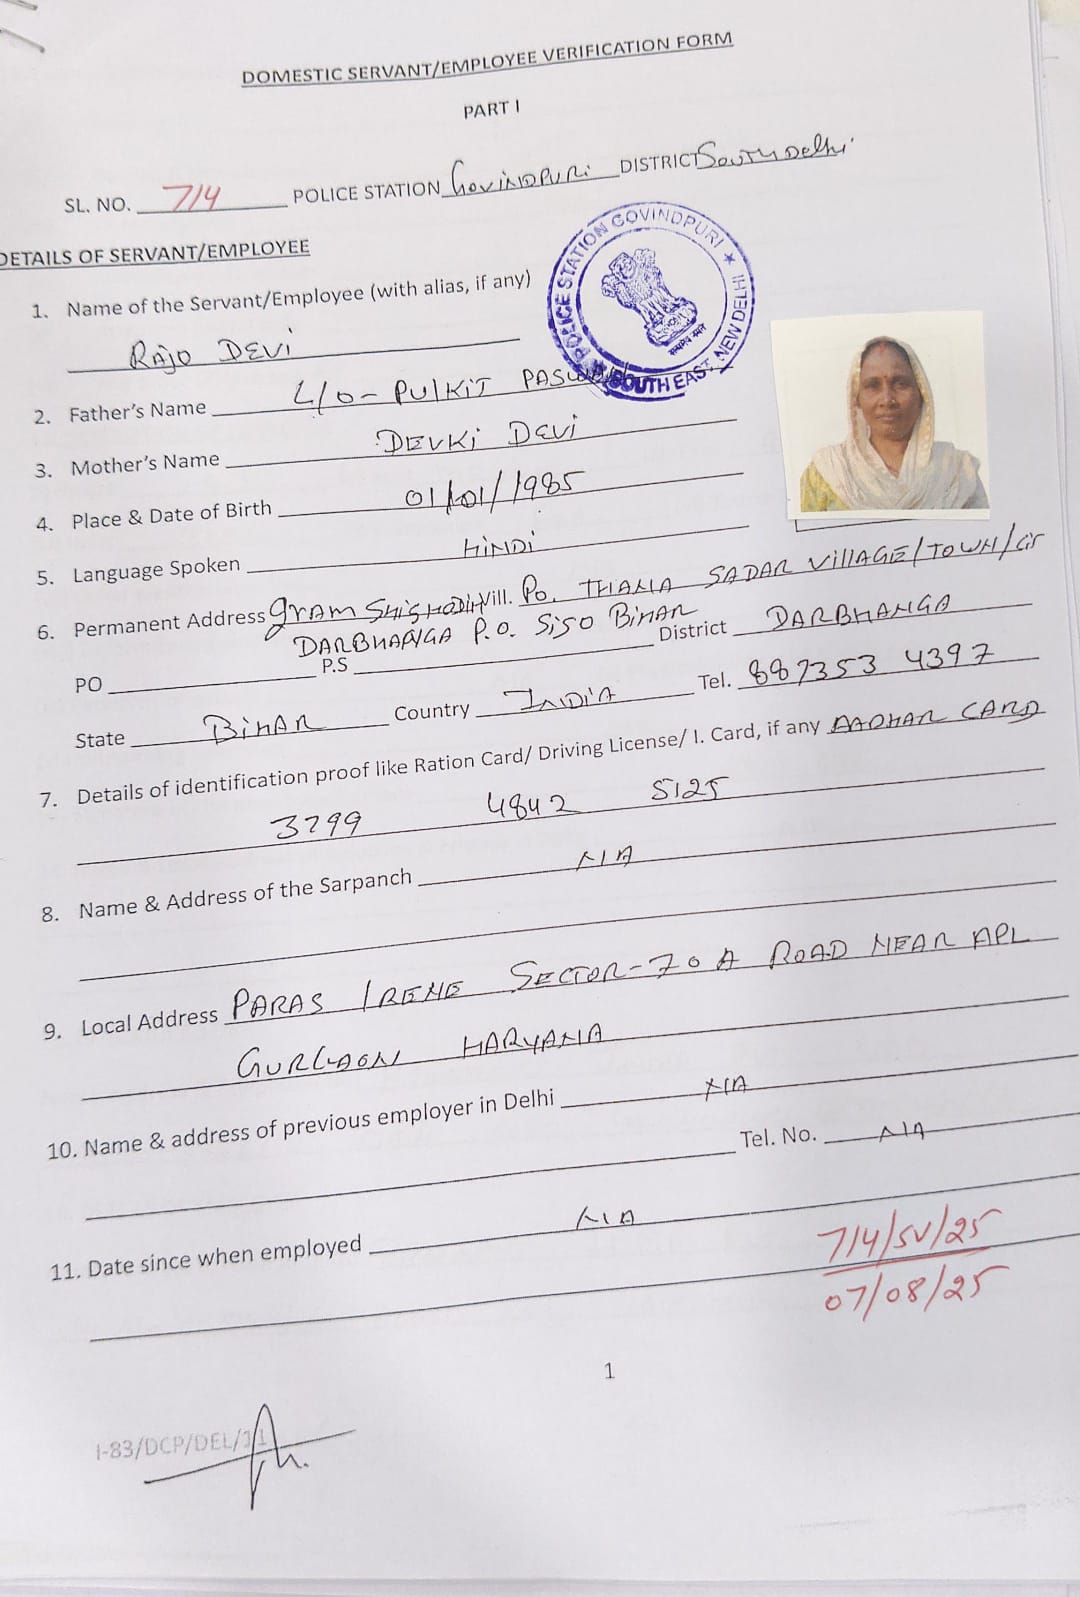 DOMESTIC SERVANT/EMPLOYEE VERIFICATION FORM
PART I
SL. NO. 714 POLICE STATION GOVINDPURI DISTRICT SOUTH Delhi
DETAILS OF SERVANT/EMPLOYEE
POLICE STATION GOVINDPURI ★ SOUTH EAST, NEW DELHI ★
सत्यमेव जयते
1. Name of the Servant/Employee (with alias, if any)
RAJO DEVI
2. Father's Name L/O- PULKIT PASWAN
3. Mother's Name DEVKI DEVI
4. Place & Date of Birth 01/01/1985
5. Language Spoken HINDI
6. Permanent Address gram Vill. Po. THANA SADAR VILLAGE/TOWN/
DARBHANGA P.O. SISO BIHAR
PO P.S District DARBHANGA
State BIHAR Country INDIA Tel. 887353 4397
7. Details of identification proof like Ration Card/ Driving License/ I. Card, if any AADHAR CARD
3799 4842 5125
8. Name & Address of the Sarpanch N/A
9. Local Address PARAS IRENE SECTOR-70 A ROAD NEAR APL
GURGAON HARYANA
10. Name & address of previous employer in Delhi N/A
Tel. No. N/A
11. Date since when employed N/A
714/SV/25
07/08/25
1
I-83/DCP/DEL/11